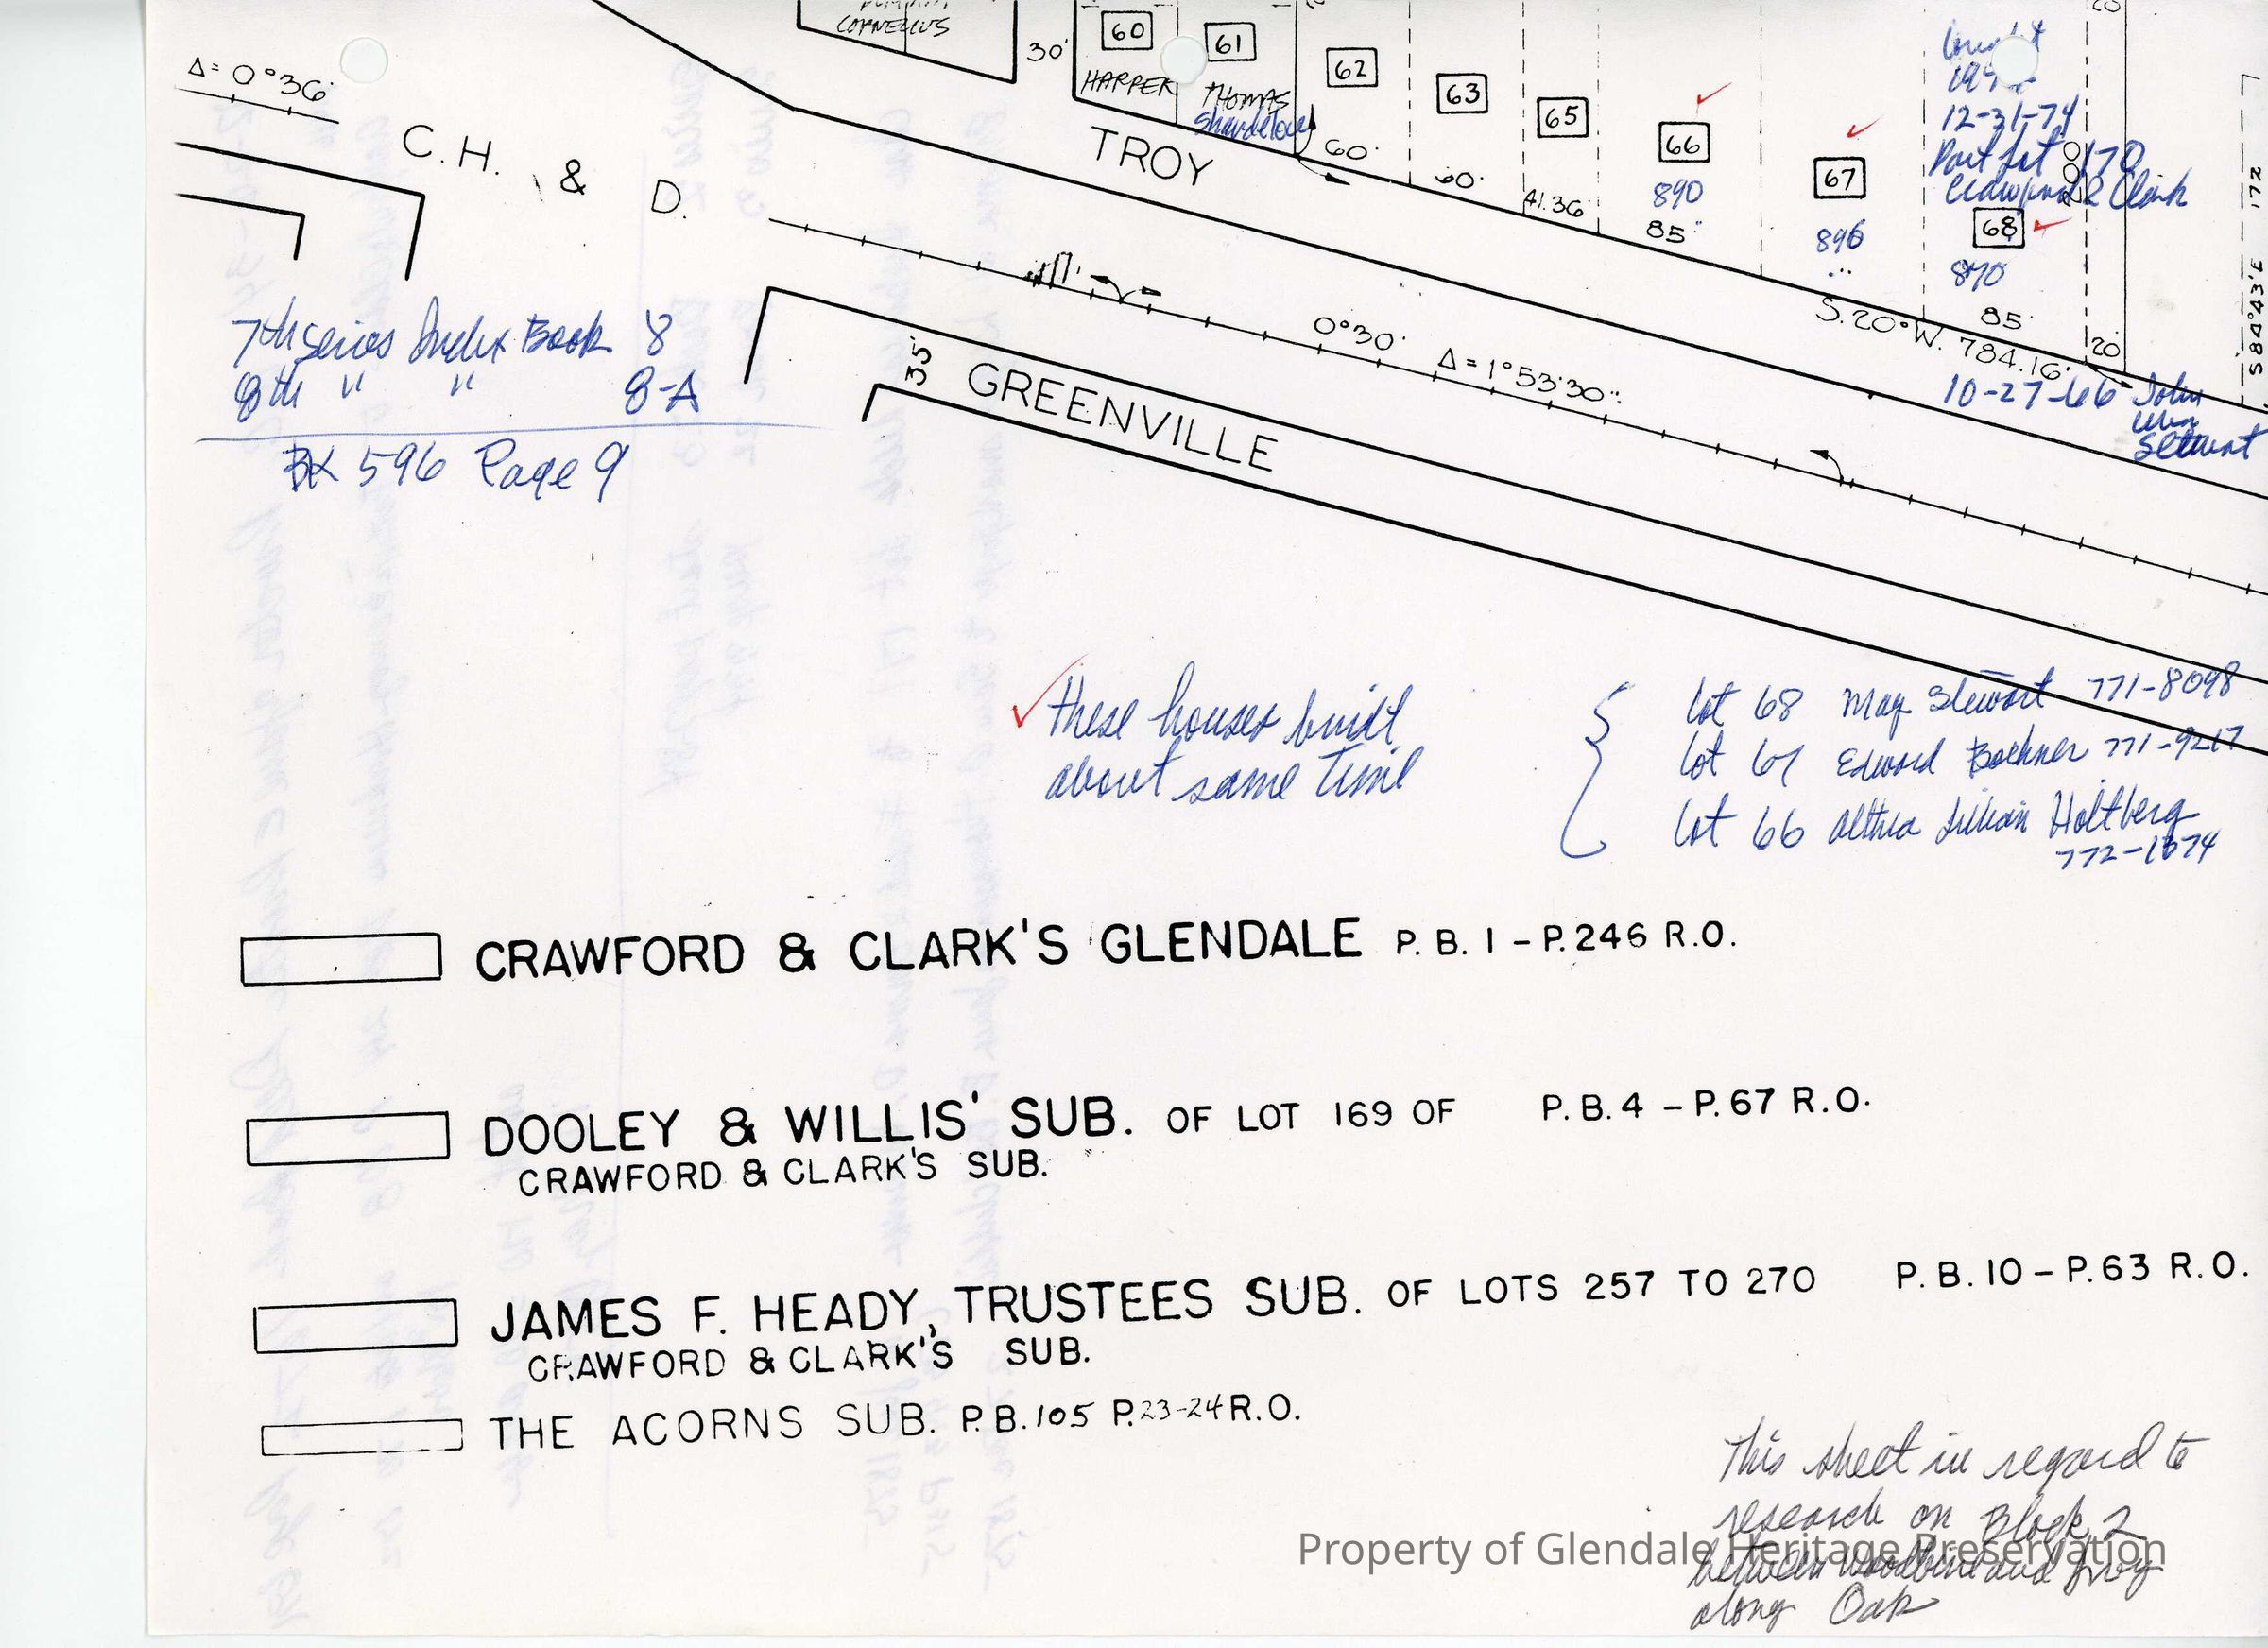 CORNELIUS
60
61
62
63
65
66
67
68
30'
HARPER
THOMAS
12-31-74
Part Lot 170
Crawford & Clark
200
172
S84°43'E
Δ= 0°36'
C.H. & D.
TROY
60'
60'
41.36'
890
85'
896
870
85'
20'
S. 20° W. 784.16'
10-27-66 John
Wm
Stewart
0°30' Δ = 1°53'30"
35'
GREENVILLE
7th Series Index Book 8
8th " " 8-A
BK 596 Page 9
these houses built
about same time
Lot 68 May Stewart 771-8098
Lot 67 Edward Boehner 771-9217
Lot 66 Althea Lillian Holtberg
772-1374
CRAWFORD & CLARK'S GLENDALE P. B. 1 - P. 246 R.O.
DOOLEY & WILLIS' SUB. OF LOT 169 OF P. B. 4 - P. 67 R.O.
CRAWFORD & CLARK'S SUB.
JAMES F. HEADY, TRUSTEES SUB. OF LOTS 257 TO 270 P. B. 10 - P. 63 R.O.
CRAWFORD & CLARK'S SUB.
THE ACORNS SUB. P.B. 105 P. 23-24 R.O.
This sheet in regard to
research on Block 2
between Woodbine and Troy
along Oak
Property of Glendale Heritage Preservation